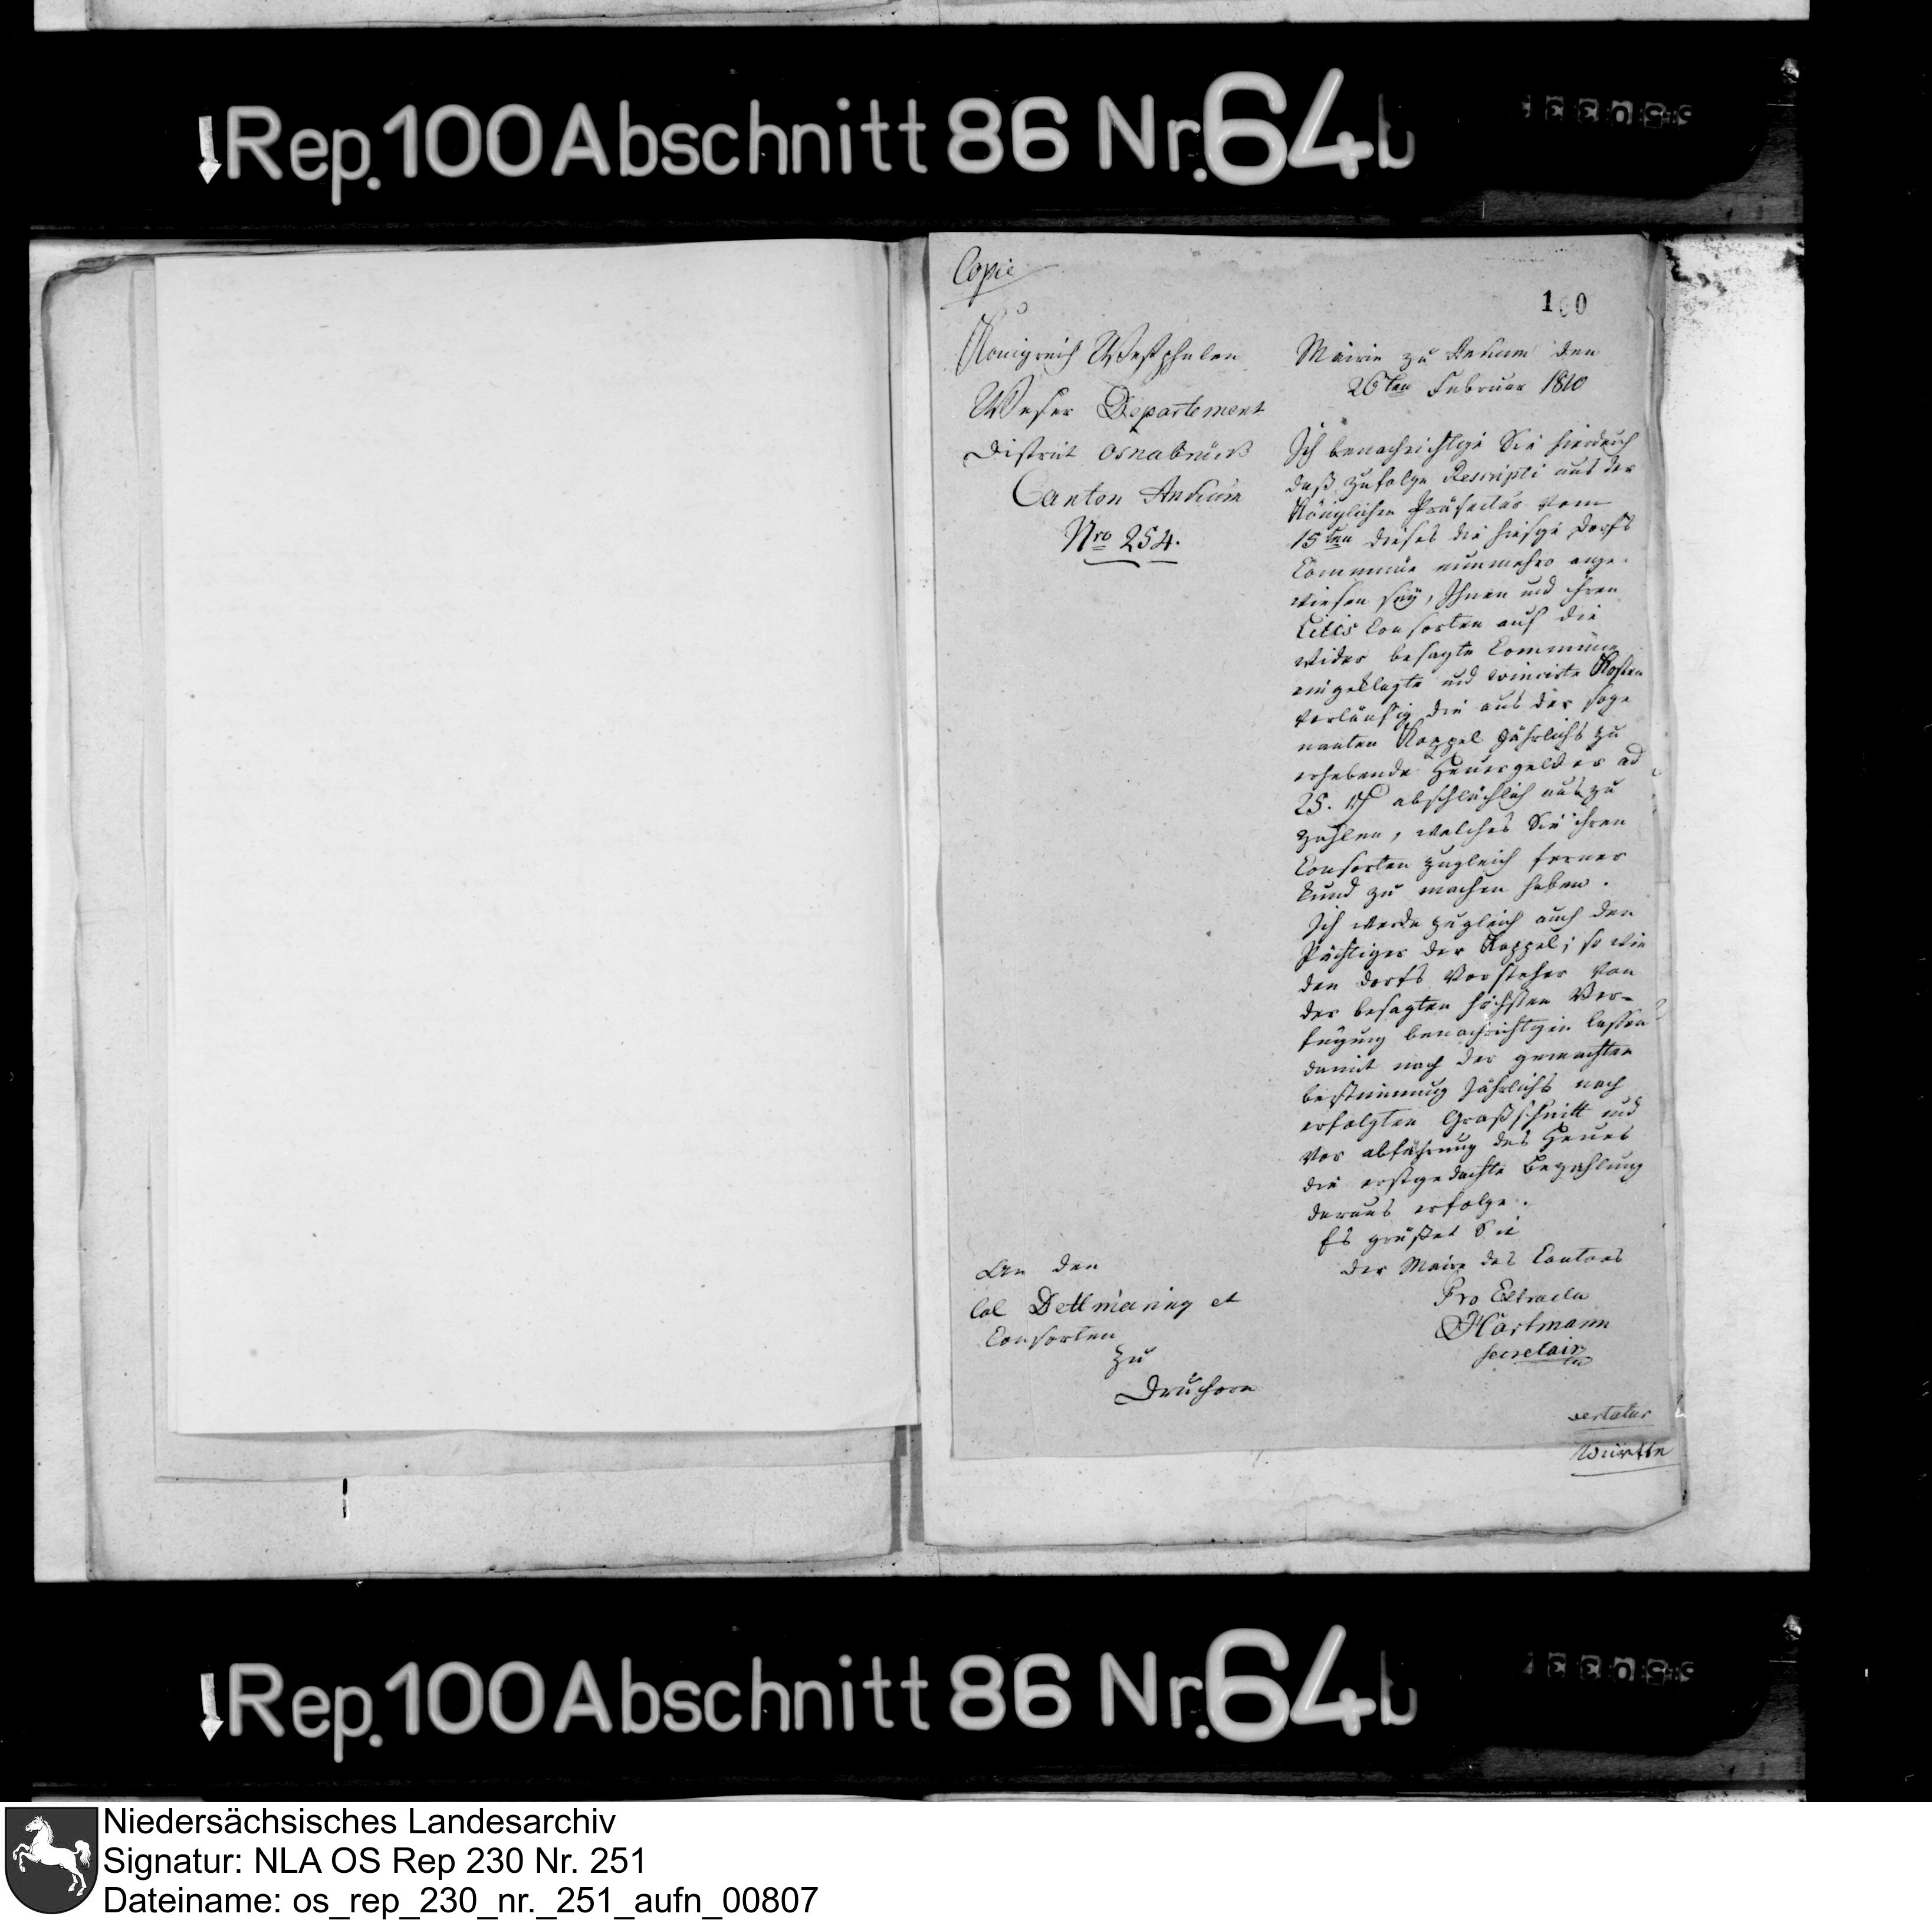 Rep. 100 Abschnitt 86 Nr. 64b
Copie
100
Königreich Westphalen
Weser Departement
District Osnabrück
Canton Ankum
Nro 254.
Mairie zu Ankum den
26ten Februar 1810
Ich benachrichtige Sie hierdurch
daß zufolge Rescripti aus der
Königlichen Präfectur vom
15ten dieses die hiesige Dorfs
Commune nunmehro ange-
wiesen sey, Ihnen und ihren
Litis Consorten auf die
wider besagte Commune
eingeklagte und Kosten
vorläufig die aus der soge
nanten Koppel Jährlichs zu
erhebende Heuergelder ad
25. rth abschläglich auszu
zahlen, welches Sie ihren
Consorten zugleich ferner
kund zu machen haben.
Ich werde zugleich auch den
Pächtiger der Koppel; so wie
den dorfs Vorsteher von
der besagten höchsten Ver-
fügung benachrichtigen lassen
damit nach der gemachten
bestimmung Jährlichs nach
erfolgten Graßschnitt und
vor abführung des Heues
die erstgedachte Bezahlung
daraus erfolge.
Es grüßet Sie
der Maire des Cantons
Pro Extractu
Hartmann
secretair
An den
Col Dettmering et
Consorten
zu
Druchorn
vertatur
Rep. 100 Abschnitt 86 Nr. 64b
Niedersächsisches Landesarchiv
Signatur: NLA OS Rep 230 Nr. 251
Dateiname: os_rep_230_nr._251_aufn_00807